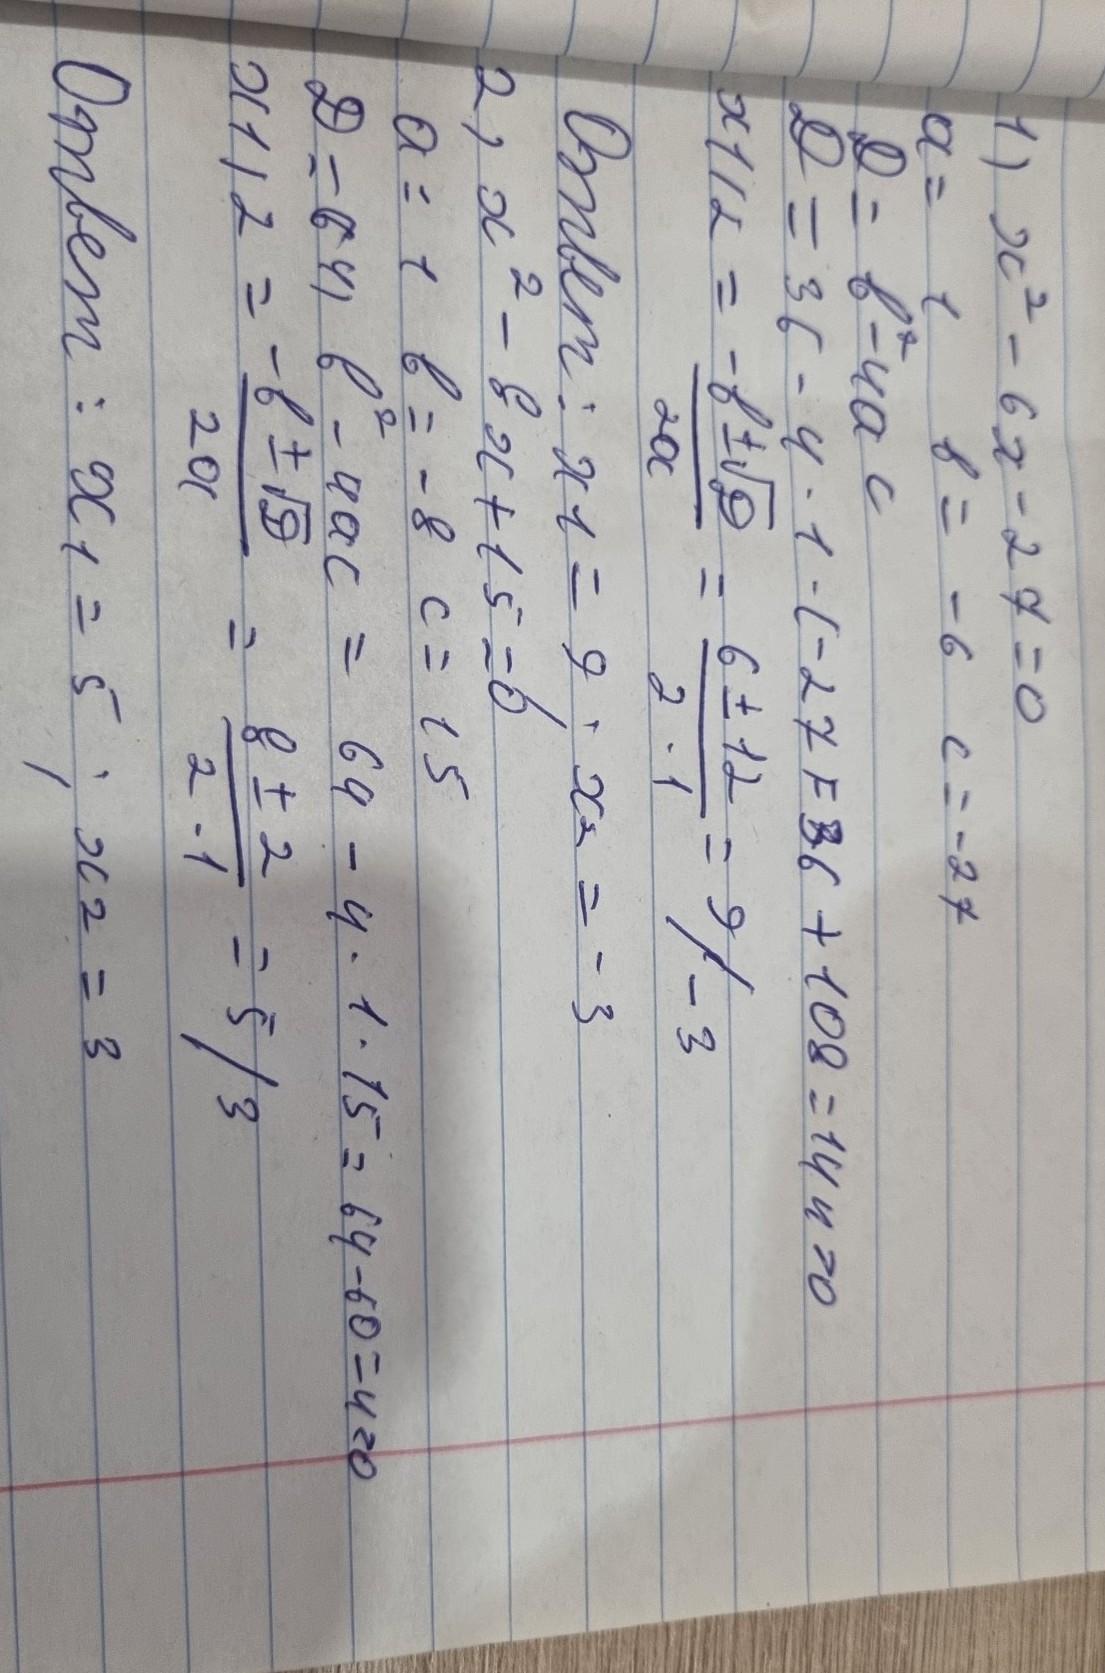 1) x² - 6x - 27 = 0
a = 1 b = -6 c = -27
D = b² - 4ac
D = 36 - 4 · 1 · (-27) = 36 + 108 = 144 > 0
x1,2 = -b ± √D / 2a = 6 ± 12 / 2 · 1 = 9 / -3
Ответ: x1 = 9; x2 = -3
2) x² - 8x + 15 = 0
a = 1 b = -8 c = 15
D = b² - 4ac = 64 - 4 · 1 · 15 = 64 - 60 = 4 > 0
x1,2 = -b ± √D / 2a = 8 ± 2 / 2 · 1 = 5 / 3
Ответ: x1 = 5; x2 = 3